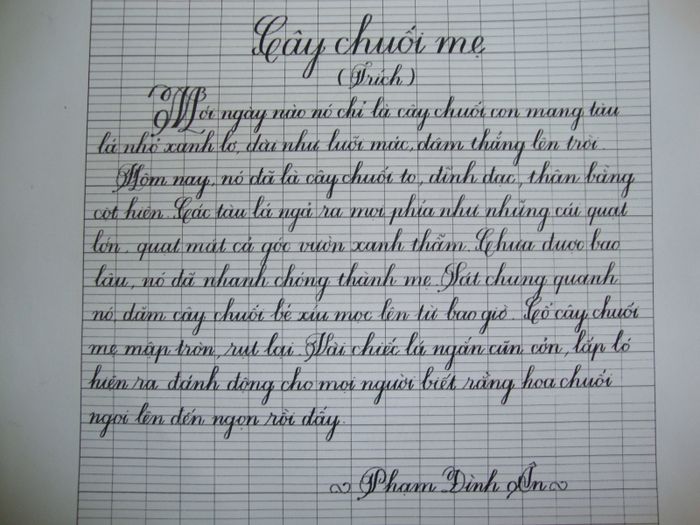 Cây chuối mẹ
(Trích)
Mới ngày nào nó chỉ là cây chuối con mang tàu
lá nhỏ xanh lơ, dài như lưỡi mác, đâm thẳng lên trời.
Hôm nay, nó đã là cây chuối to, đĩnh đạc, thân bằng
cột hiên. Các tàu lá ngả ra mọi phía như những cái quạt
lớn, quạt mát cả góc vườn xanh thẫm. Chưa được bao
lâu, nó đã nhanh chóng thành mẹ. Sát chung quanh
nó, dăm cây chuối bé xíu mọc lên từ bao giờ. Cổ cây chuối
mẹ mập tròn, rụt lại. Vài chiếc lá ngắn cũn cỡn, lấp ló
hiện ra đánh động cho mọi người biết rằng hoa chuối
ngoi lên đến ngọn rồi đấy.
Phạm Đình Ân